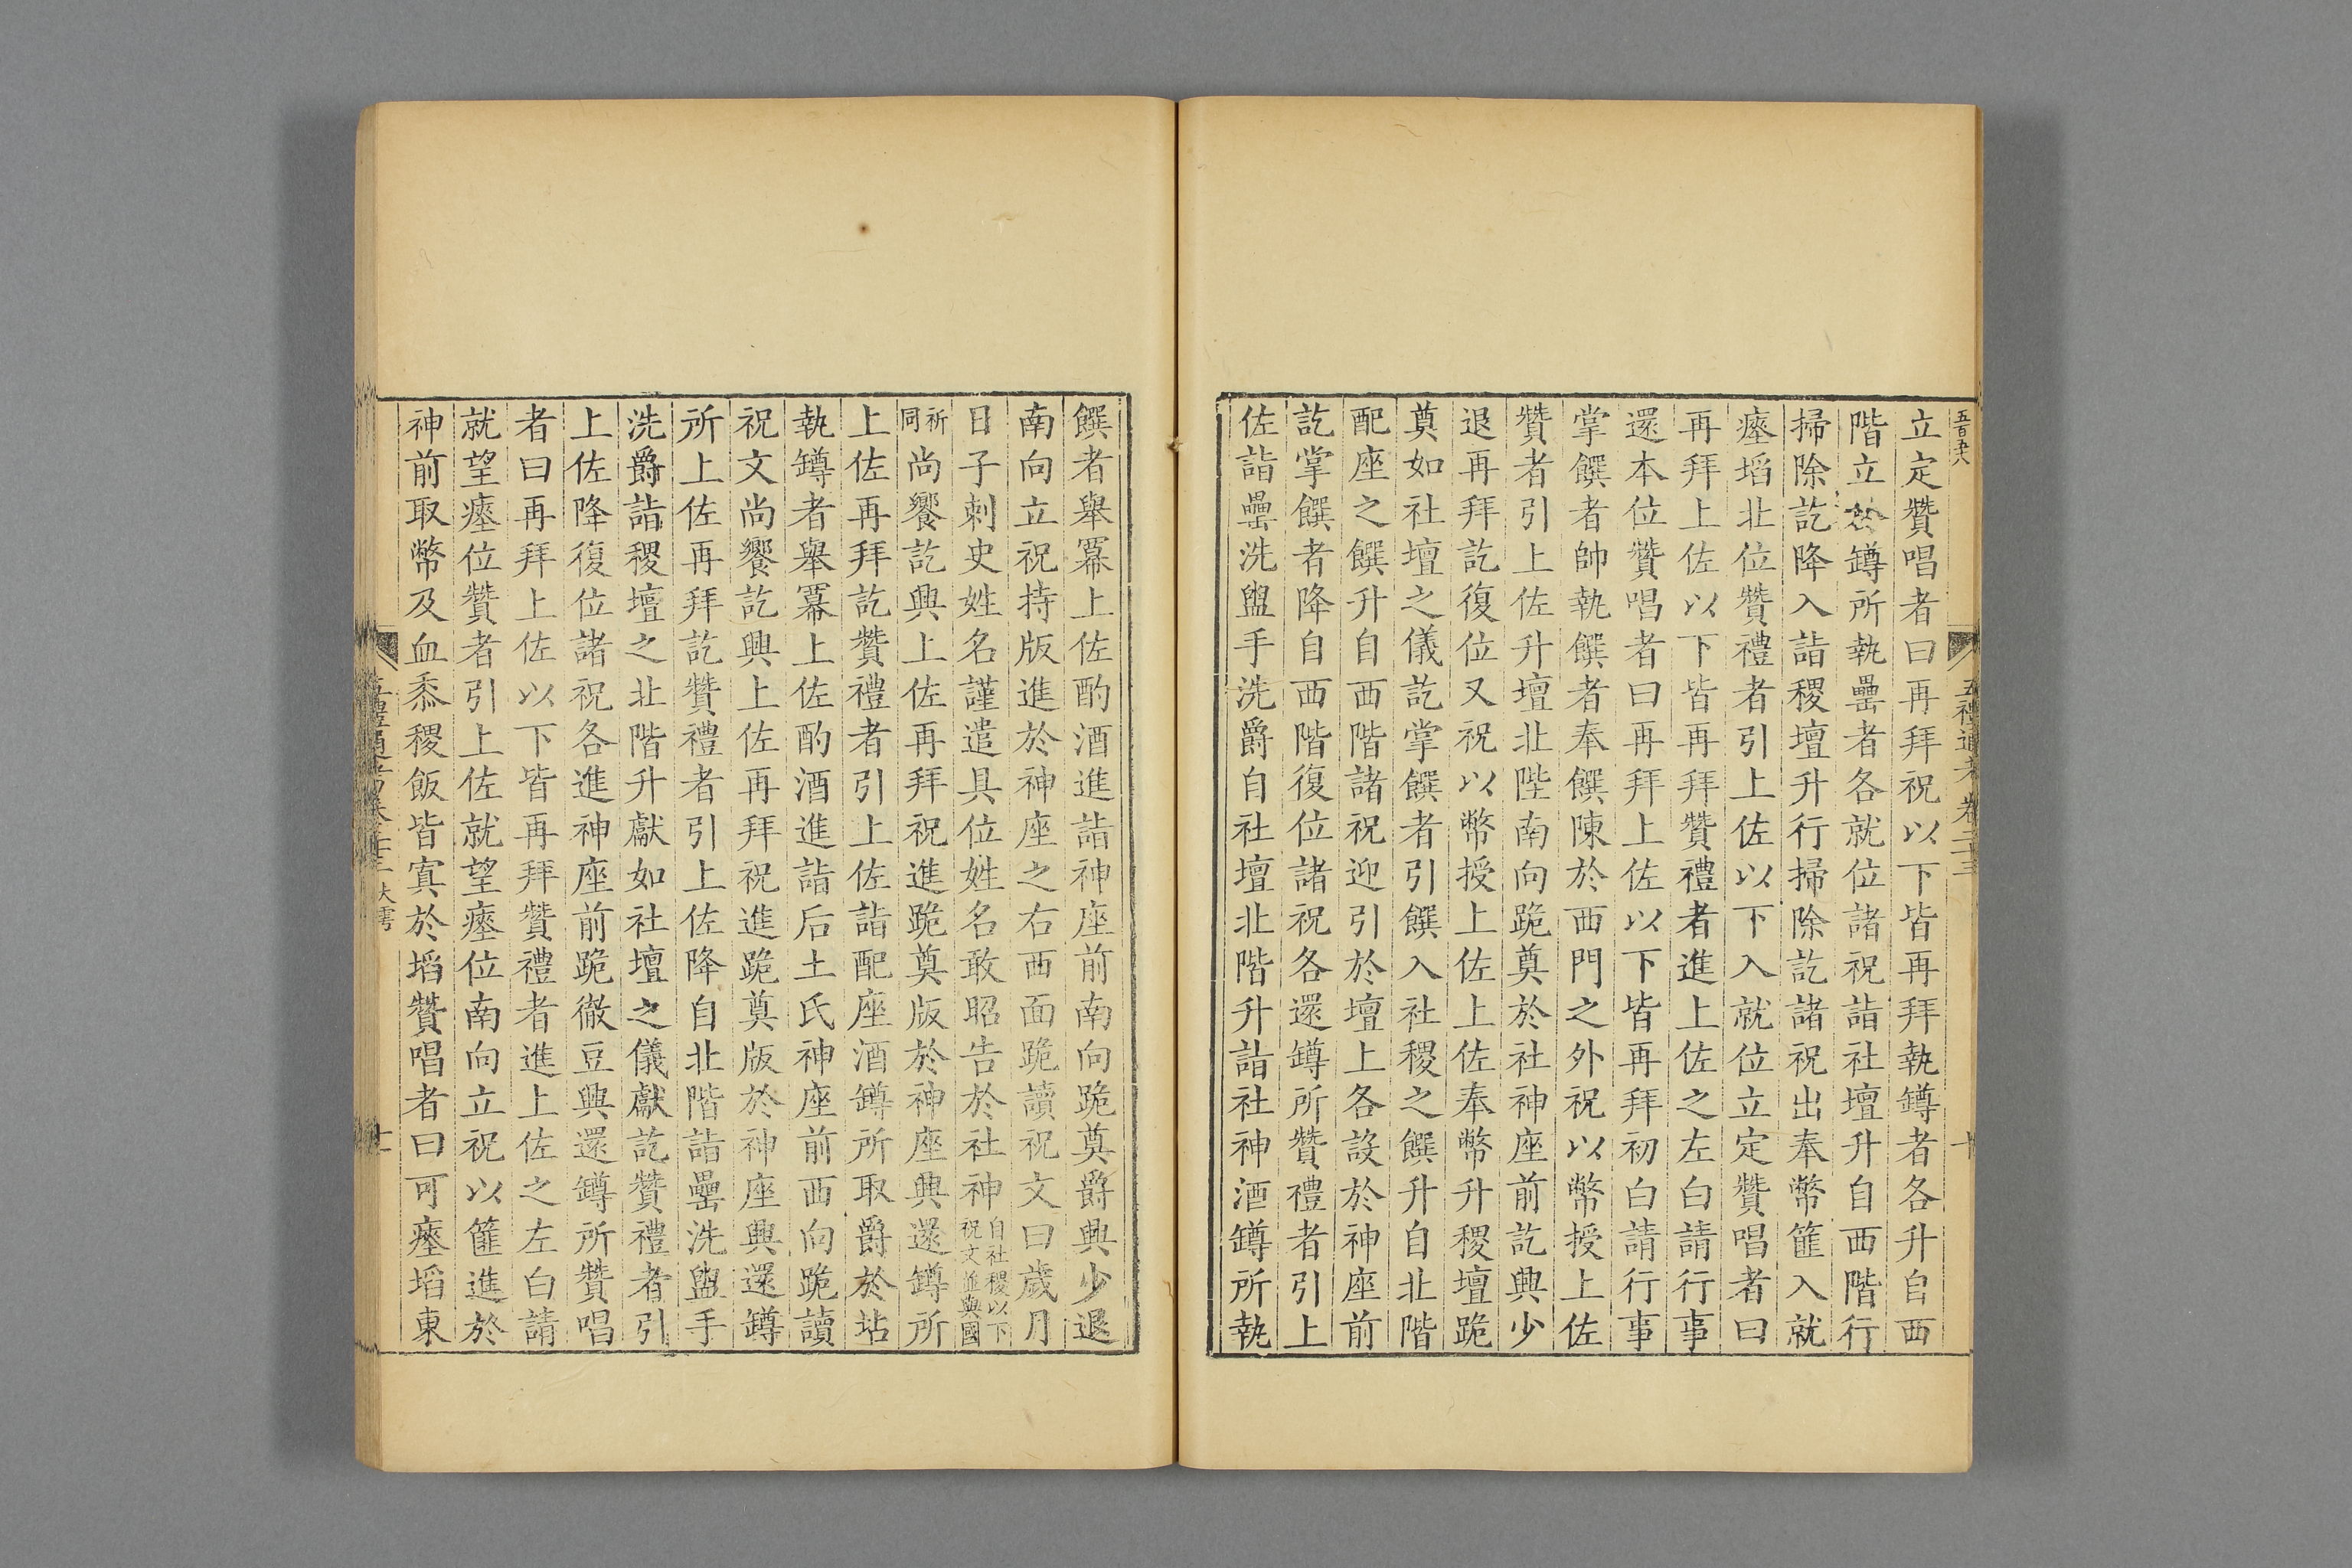 五禮通考 卷二十三
十
立定贊唱者曰再拜祝以下皆再拜執罇者各升自西
階立於罇所執罍者各就位諸祝詣社壇升自西階行
掃除訖降入詣稷壇升行掃除訖諸祝出奉幣篚入就
瘞埳北位贊禮者引上佐以下入就位立定贊唱者曰
再拜上佐以下皆再拜贊禮者進上佐之左白請行事
還本位贊唱者曰再拜上佐以下皆再拜初白請行事
掌饌者帥執饌者奉饌陳於西門之外祝以幣授上佐
贊者引上佐升壇北陛南向跪奠於社神座前訖興少
退再拜訖復位又祝以幣授上佐上佐奉幣升稷壇跪
奠如社壇之儀訖掌饌者引饌入社稷之饌升自北階
配座之饌升自西階諸祝迎引於壇上各設於神座前
訖掌饌者降自西階復位諸祝各還罇所贊禮者引上
佐詣罍洗盥手洗爵自社壇北階升詣社神酒罇所執
饌者舉羃上佐酌酒進詣神座前南向跪奠爵興少退
南向立祝持版進於神座之右西面跪讀祝文曰歲月
日子刺史姓名謹遣具位姓名敢昭告於社神自社稷以下祝文並與國
祈同尚饗訖興上佐再拜祝進跪奠版於神座興還罇所
上佐再拜訖贊禮者引上佐詣配座酒罇所取爵於坫
執罇者舉羃上佐酌酒進詣后土氏神座前西向跪讀
祝文尚饗訖興上佐再拜祝進跪奠版於神座興還罇
所上佐再拜訖贊禮者引上佐降自北階詣罍洗盥手
洗爵詣稷壇之北階升獻如社壇之儀獻訖贊禮者引
上佐降復位諸祝各進神座前跪徹豆興還罇所贊唱
者曰再拜上佐以下皆再拜贊禮者進上佐之左白請
就望瘞位贊者引上佐就望瘞位南向立祝以篚進於
神前取幣及血黍稷飯皆寘於埳贊唱者曰可瘞埳東
大雩